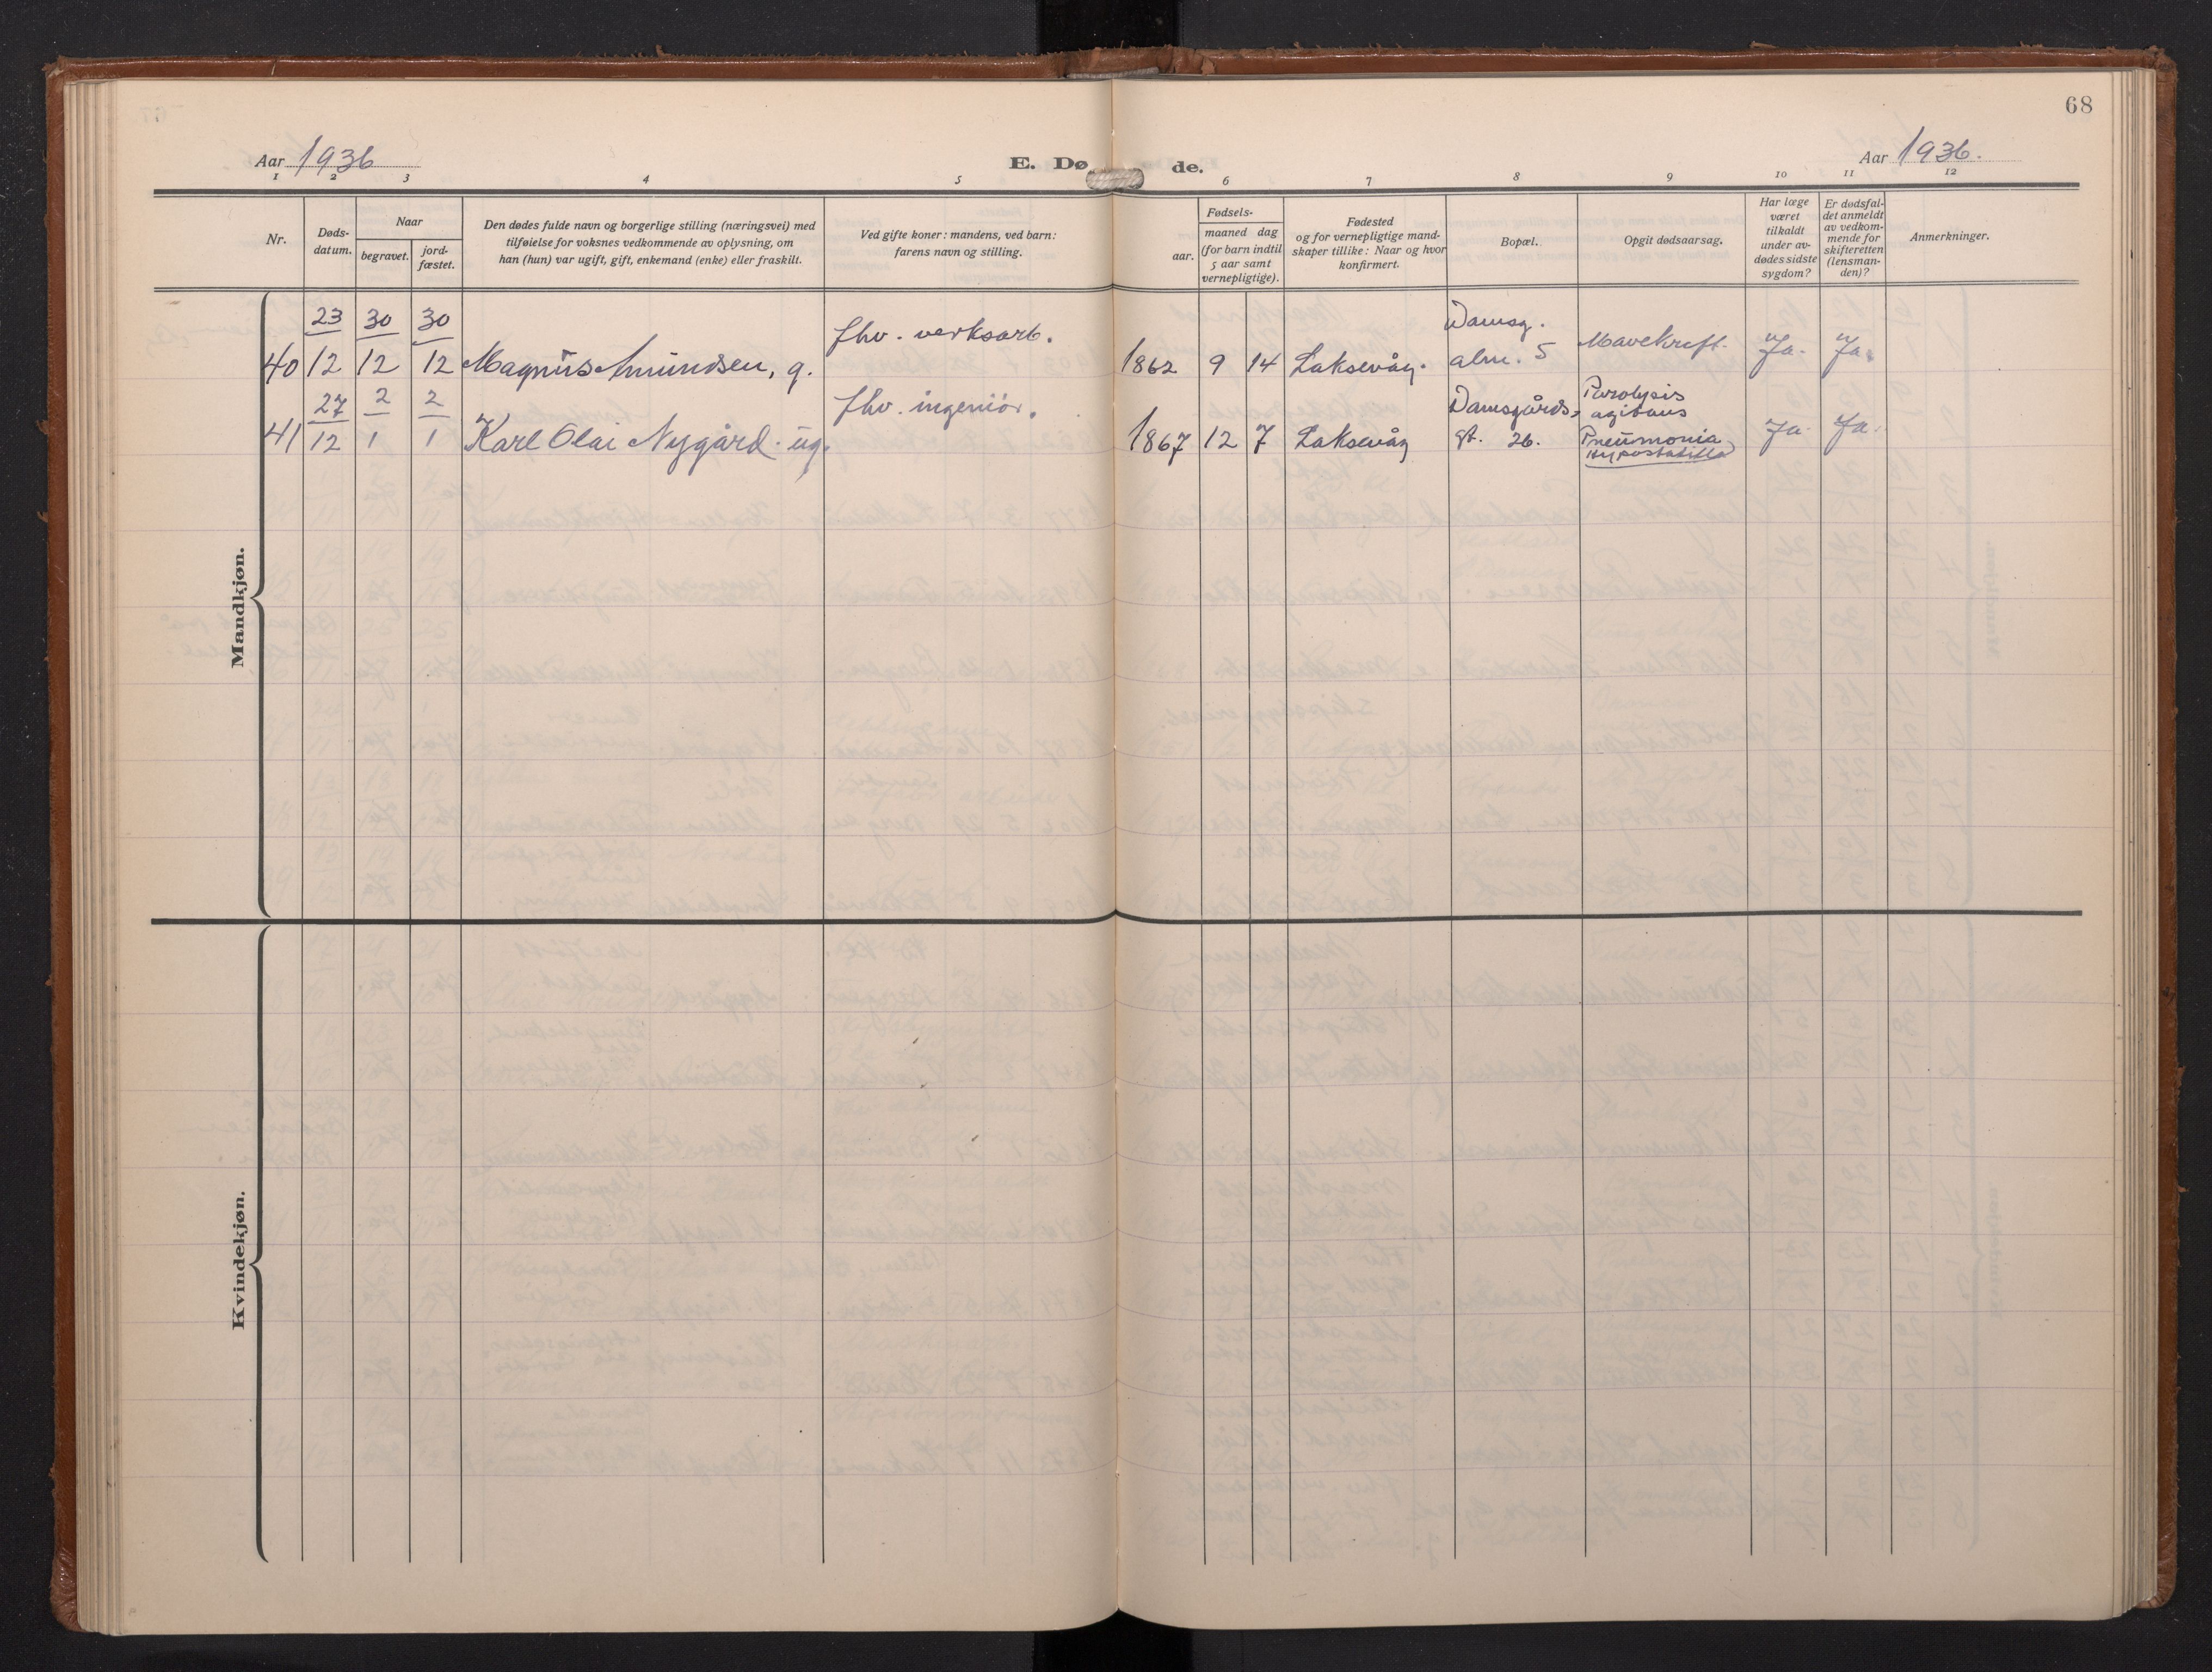 68
Aar 1936
E. Dø de.
Aar 1936.
1 2 3 4 5 6 7 8 9 10 11 12
Nr.
Døds-
datum.
Naar
begravet.
jord-
fæstet.
Den dødes fulde navn og borgerlige stilling (næringsvei) med
tilføielse for voksnes vedkommende av oplysning, om
han (hun) var ugift, gift, enkemand (enke) eller fraskilt.
Ved gifte koner: mandens, ved barn:
farens navn og stilling.
Fødsels-
aar.
maaned dag
(for barn indtil
5 aar samt
vernepligtige).
Fødested
og for vernepligtige mand-
skaper tillike: Naar og hvor
konfirmert.
Bopæl.
Opgit dødsaarsag.
Har læge
været
tilkaldt
under av-
dødes sidste
sygdom?
Er dødsfal-
det anmeldt
av vedkom-
mende for
skifteretten
(lensman-
den)?
Anmerkninger.
Mandkjøn.
23 30 30 fhv. verksarb. Damsg.
40 12 12 12 Magnus Amundsen, g. 1862 9 14 Laksevåg. alm. 5 Mavekreft. Ja. Ja.
27 2 2 fhv. ingeniör. Damsgårds- Paralysis agitans
41 12 1 1 Karl Olai Nygård. ug. 1867 12 7 Laksevåg gt. 26. Pneumonia Ja. Ja.
Kvindekjøn.